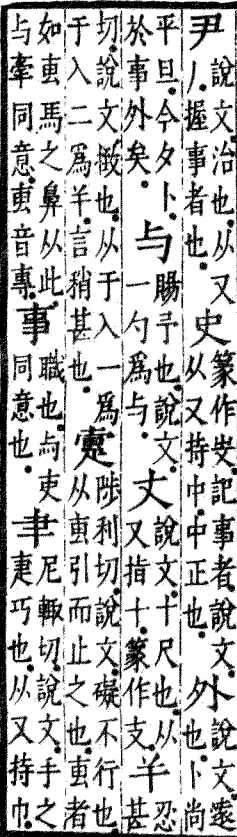 尹說文治也从又丿握事者也史篆作㕜記事者說文从又持中中正也外說文遠也卜尚
平旦今夕卜於事外矣与賜予也說文一勺爲与丈說文十尺也从又指十篆作支𢆉忍甚
切說文㨖也从于入一爲于入二爲𢆉言稍甚也疐陟利切說文礙不行也从叀引而止之也叀者
如叀馬之鼻从此与牽同意叀音專事職也与吏同意也𦘒尼輒切說文手之疌巧也从又持巾